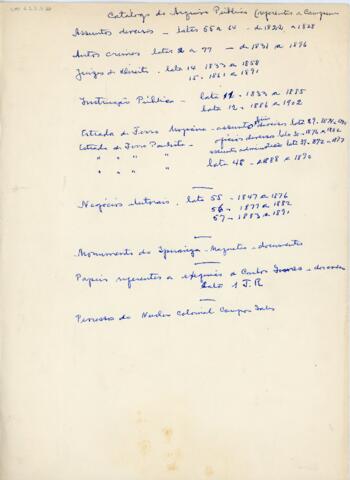 Catalogo do Arquivo Público (referentes a Campinas
Assuntos diversos - latas 55 a 64 - de 1822 a 1828
Autos crimes latas 2 a 77 - de 1831 a 1876
Juizos de direito - lata 14 1833 a 1858
15 - 1861 a 1891
Instrucção Pública - lata 1833 a 1885
lata 12 - 1886 a 1902
Estrada de Ferro Mogiana - assuntos diversos lata 27
Estrada de Ferro Paulista - officios diversos lata 1876 a 1882
" " " " assuntos administrativos lata 27 - 1877
" " " " lata 48 - 1888 a 1890
Negócios eleitorais - lata 55 - 1847 a 1876
56 - 1877 a 1882
57 - 1883 a 1891
Monumento do Ipiranga - Maquetes - documentos
Papeis referentes a exéquias a Carlos Gomes -
lata 1 J.R
Processo do Nucleo Colonial Campos Sales